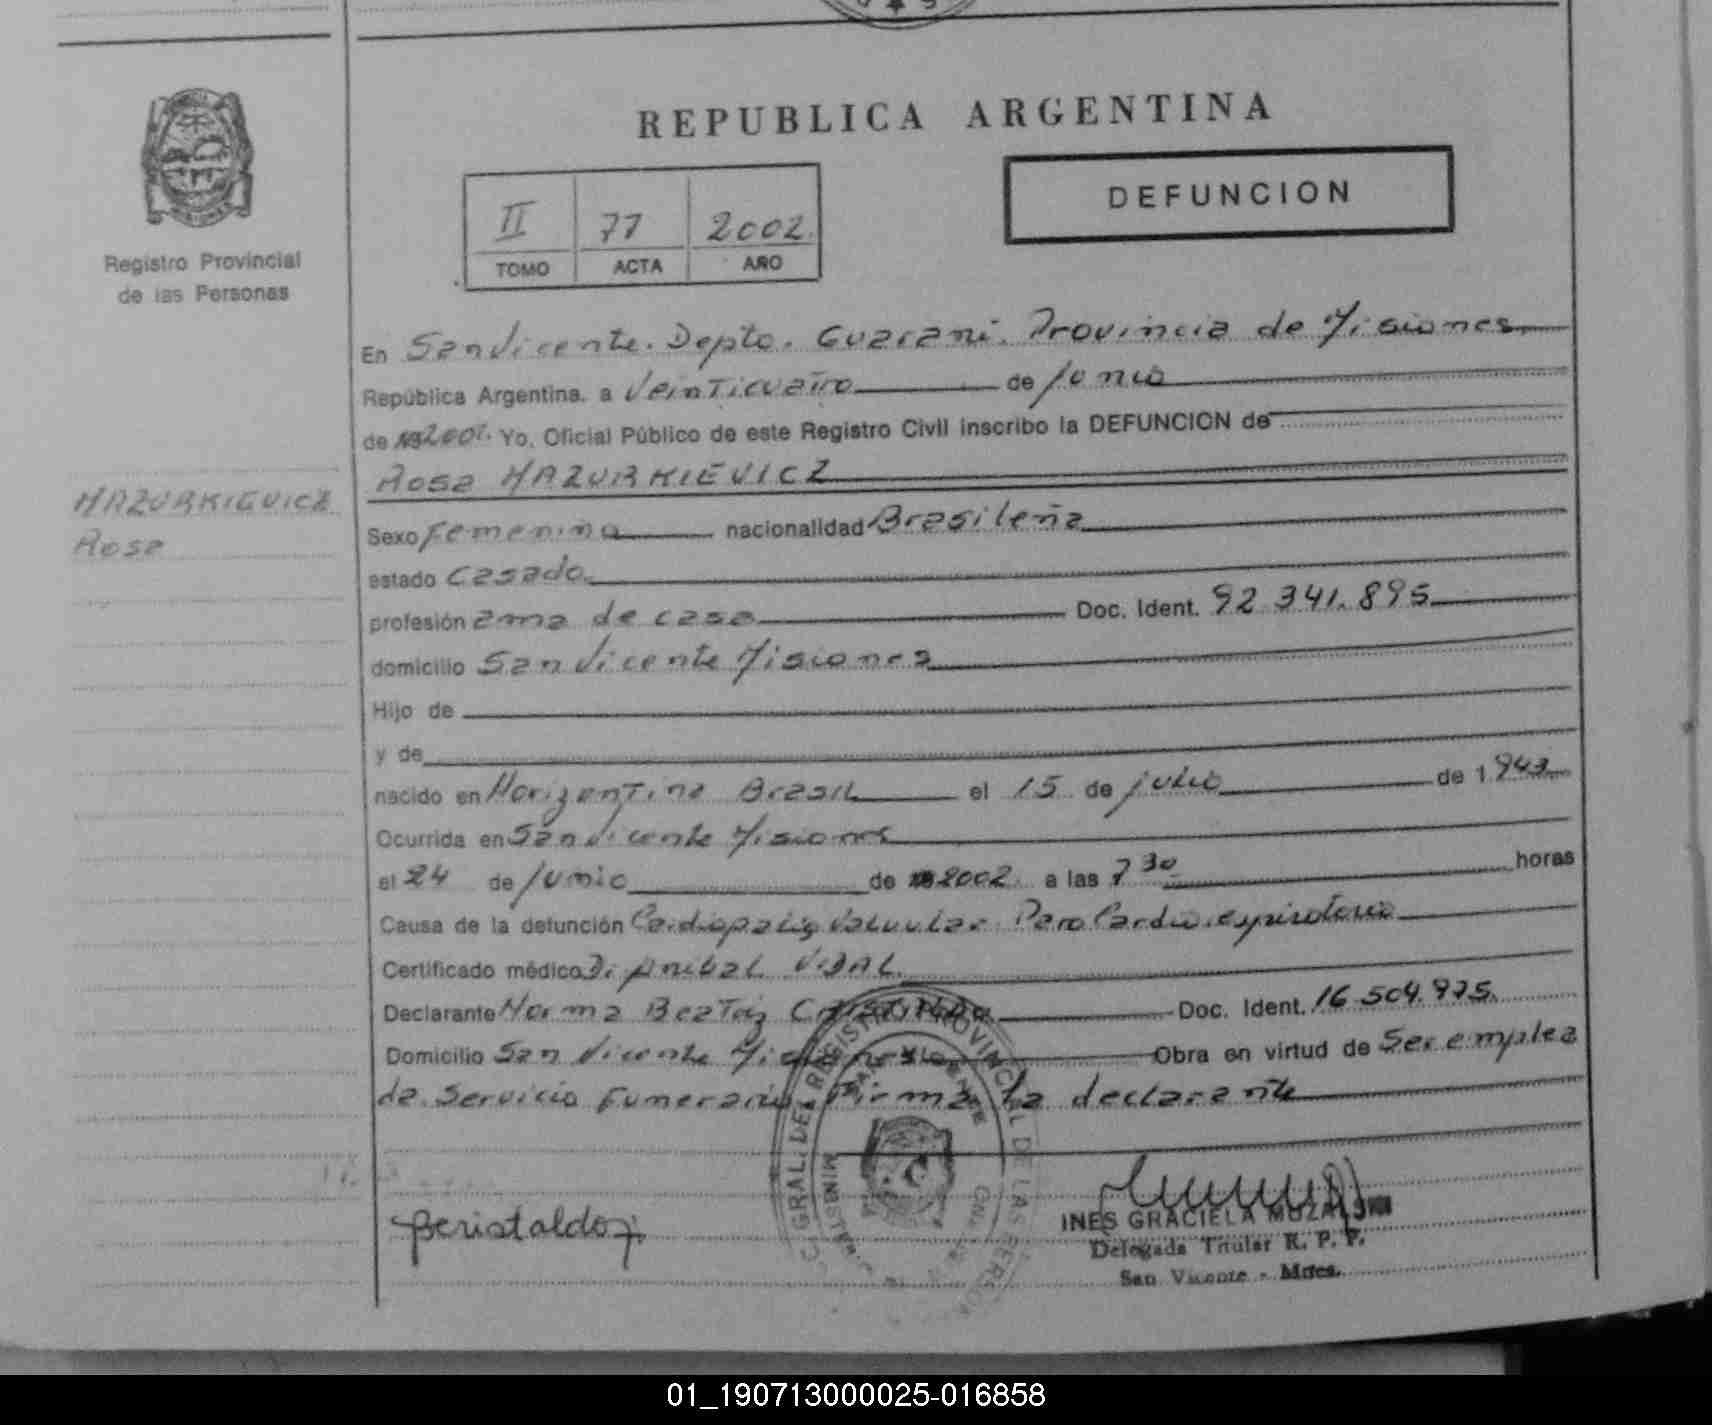 REPUBLICA ARGENTINA
DEFUNCION
II 77 2002.
TOMO ACTA AÑO
Registro Provincial
de las Personas
En San Vicente. Depto. Guarani. Provincia de Misiones
República Argentina, a Veinticuatro de Junio
de 2002. Yo, Oficial Público de este Registro Civil inscribo la DEFUNCION de
Rosa MAZURKIEVICZ
MAZURKIEVICZ
Rosa
Sexo Femenino nacionalidad Brasileña
estado Casado.
profesión ama de casa Doc. Ident. 92.341.895
domicilio San Vicente Misiones
Hijo de
y de
nacido en Horizontina Brasil el 15 de julio de 1943
Ocurrida en San Vicente Misiones
el 24 de Junio de 2002. a las 7 30 horas
Causa de la defunción Cardiopatia Valvular. Paro Cardiorespiratorio
Certificado médico Dr Anibal Vidal.
Declarante Norma Beatriz Doc. Ident. 16.504.975.
Domicilio San Vicente Misiones Obra en virtud de Ser emplea
da Servicio Funerario. Firma la declarante
REGISTRO PROVINCIAL DE LAS PERSONAS
INES GRACIELA
Delegada Titular R. P. P.
San Vicente - Mnes.
01_190713000025-016858